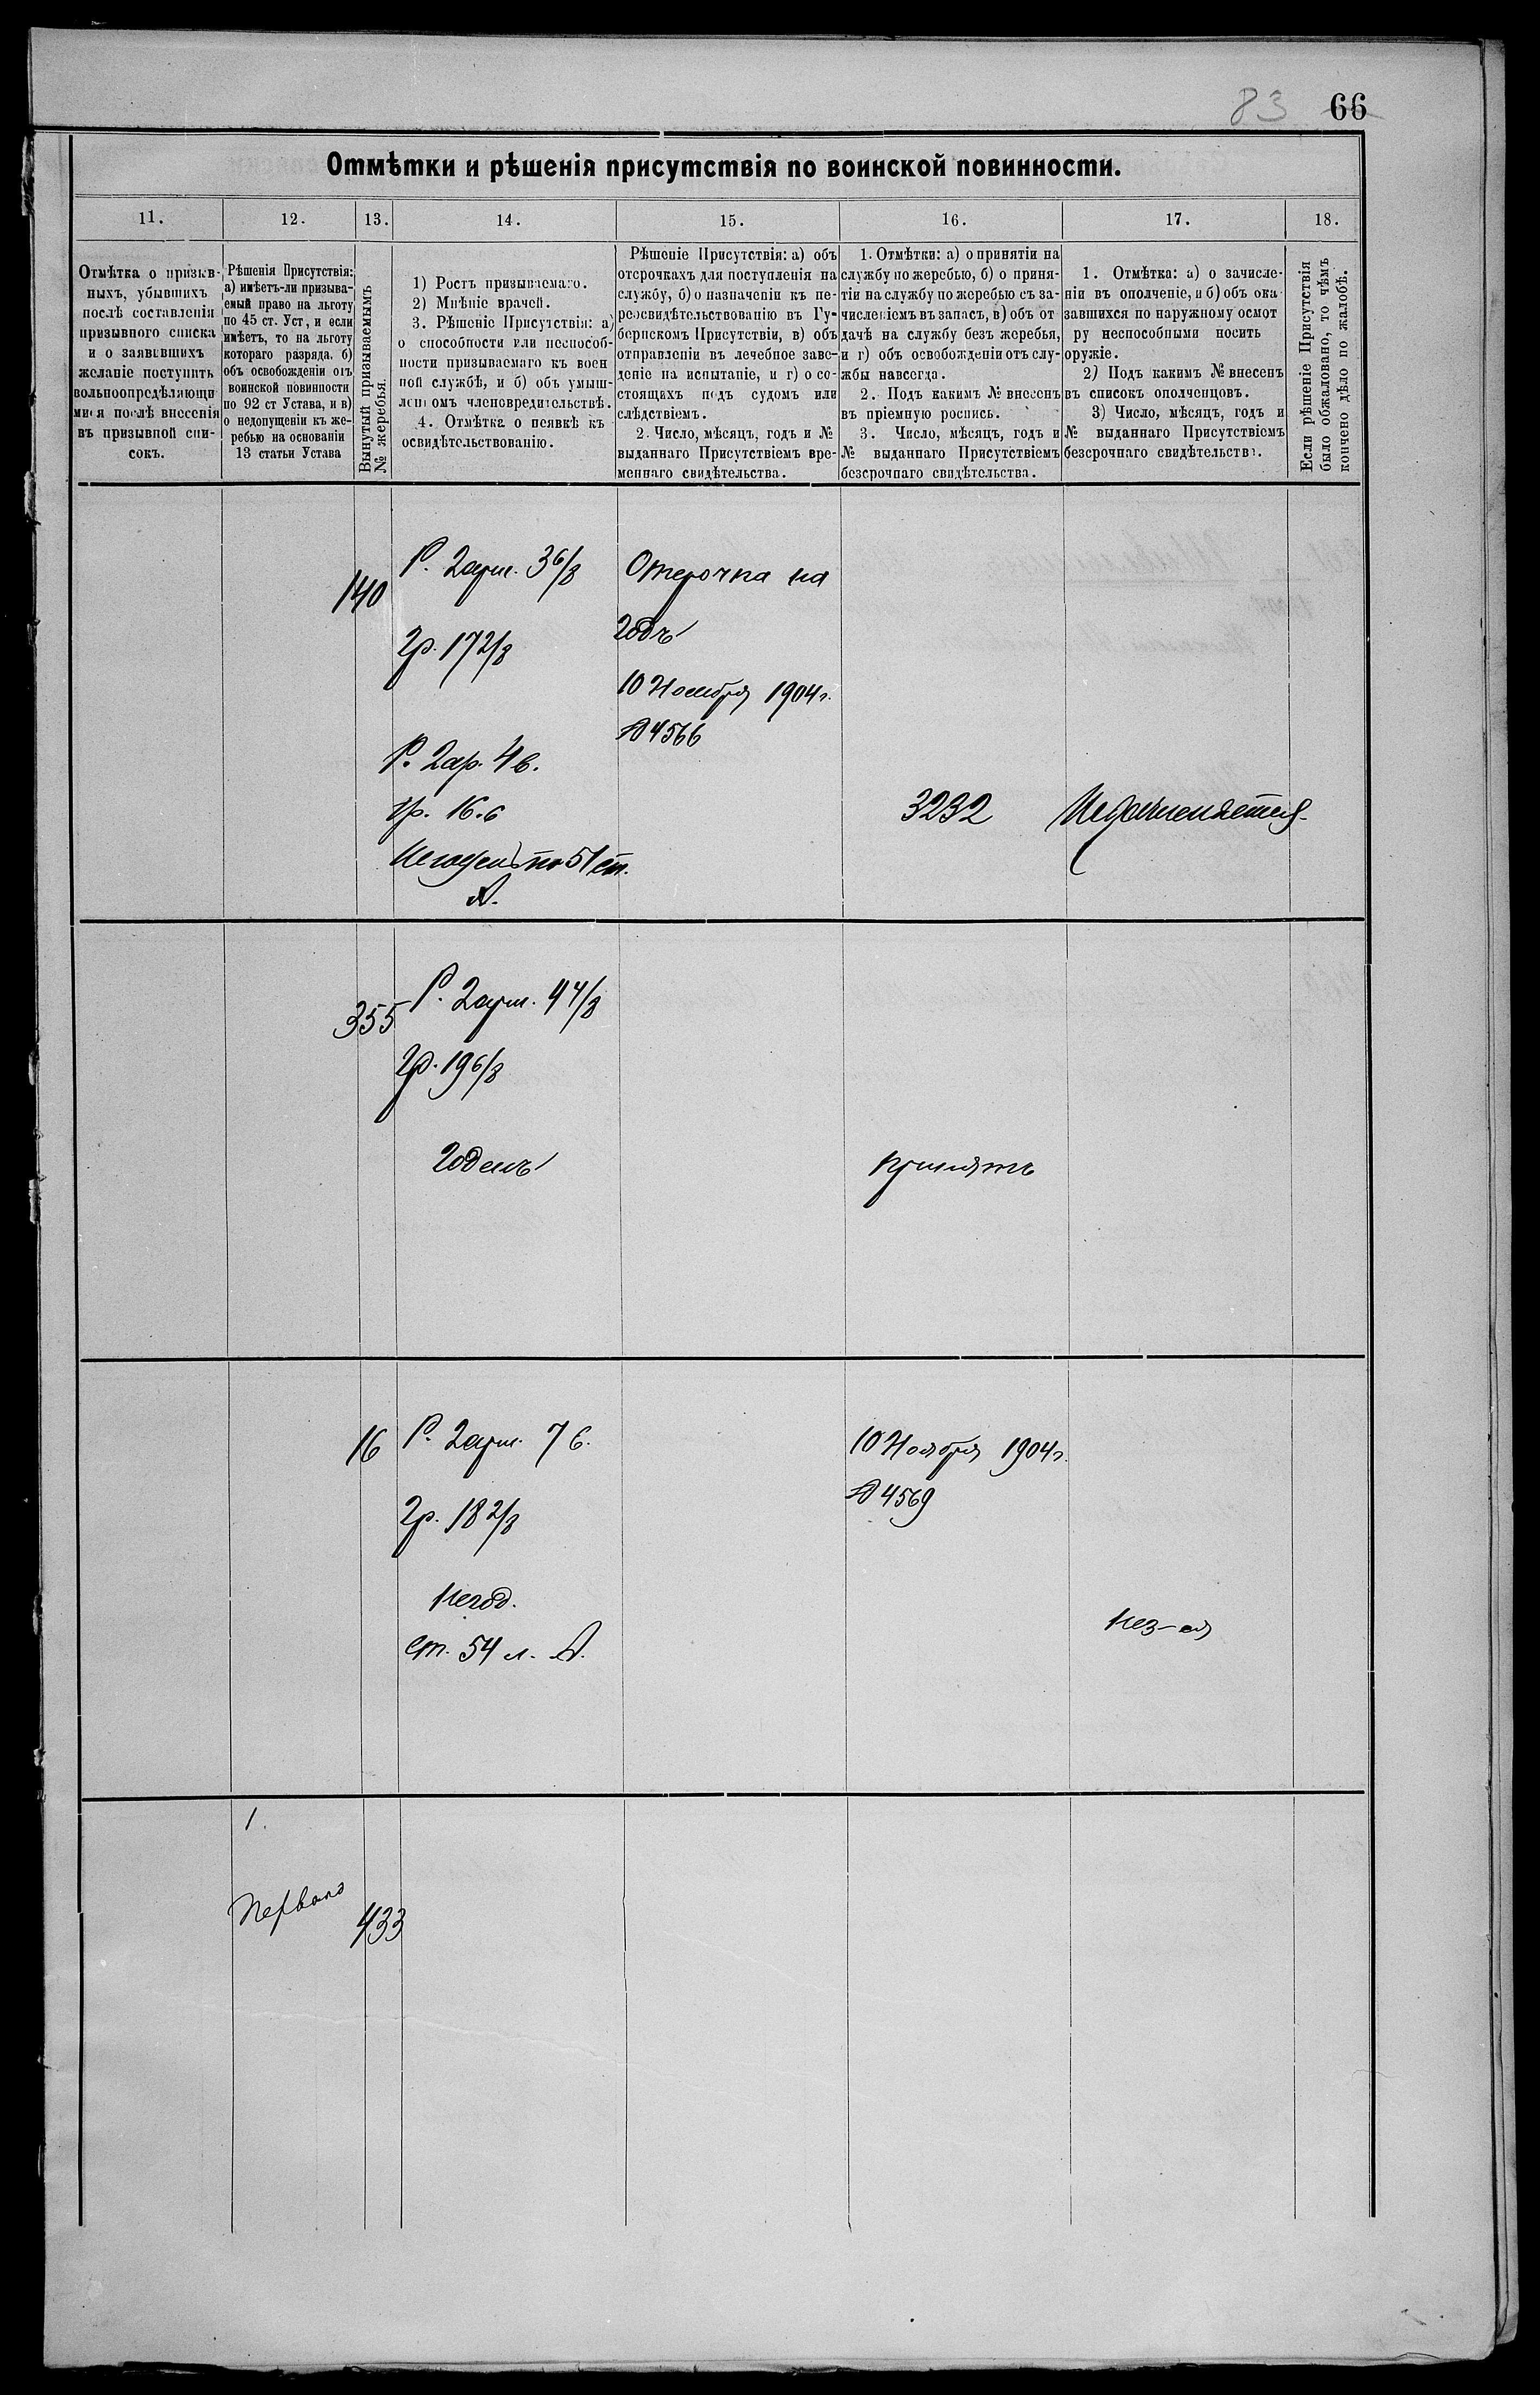 83 66
Отмѣтки и рѣшенія присутствія по воинской повинности.
11. 12. 13. 14. 15. 16. 17. 18.
Отмѣтка о призыв-
ныхъ, убывшихъ
послѣ составленія
призывного списка
и о заявившихъ
желаніе поступить
вольноопредѣляющи
мися послѣ внесенія
въ призывной спи-
сокъ.
Рѣшенія Присутствія:
а) имѣетъ-ли призыва-
емый право на льготу
по 45 ст. Уст, и если
имѣетъ, то на льготу
котораго разряда. б)
объ освобожденіи отъ
воинской повинности
по 92 ст Устава, и в)
о недопущеніи къ же-
ребью на основаніи
13 статьи Устава
Вынутый призываемымъ
№ жеребья.
1) Ростъ призываемаго.
2) Мнѣніе врачей.
3. Рѣшеніе Присутствія: а)
о способности или неспособ-
ности призываемаго къ воен
ной службѣ, и б) объ умыш-
ленномъ членовредительствѣ.
4. Отмѣтка о неявкѣ къ
освидѣтельствованію.
Рѣшеніе Присутствія: а) объ
отсрочкахъ для поступленія на
службу, б) о назначеніи къ пе-
реосвидѣтельствованію въ Гу-
бернскомъ Присутствіи, в) объ
отправленіи въ лечебное заве-
деніе на испытаніе, и г) о со-
стоящахъ подъ судомъ или
слѣдствіемъ.
2. Число, мѣсяцъ, годъ и №
выданнаго Присутствіемъ вре-
меннаго свидѣтельства.
1. Отмѣтки: а) о принятіи на
службу по жеребью, б) о приня-
тіи на службу по жеребью съ за-
численіемъ въ запасъ, в) объ от
дачѣ на службу безъ жеребья,
и г) объ освобожденіи отъ слу-
жбы навсегда.
2. Подъ какимъ № внесенъ
въ пріемную роспись.
3. Число, мѣсяцъ, годъ и
№ выданнаго Присутствіемъ
безсрочнаго свидѣтельства.
1. Отмѣтка: а) о зачисле-
ніи въ ополченіе, и б) объ ока
завшихся по наружному осмот
ру неспособными носить
оружіе.
2) Подъ какимъ № внесенъ
въ списокъ ополченцовъ.
3) Число, мѣсяцъ, годъ и
№ выданнаго Присутствіемъ
безсрочнаго свидѣтельства.
Если рѣшеніе Присутствія
было обжаловано, то чѣмъ
кончено дѣло по жалобѣ.
140
Р. 2 арш. 3 6/8
Гр. 17 2/8
Р. 2 ар. 4 в.
гр. 16.6
Негоденъ по 51 ст.
А.
Отсрочка на
годъ
10 Ноября 1904 г.
№ 4566
3232
Незачисляется
355
Р. 2 арш. 4 4/8
Гр. 19 6/8
Годенъ
принять
16
Р. 2 арш. 7 в.
Гр. 18 2/8
Негод.
ст. 54 л. А.
10 Ноября 1904 г.
№ 4569
Нез-ся
1.
Перваго
433